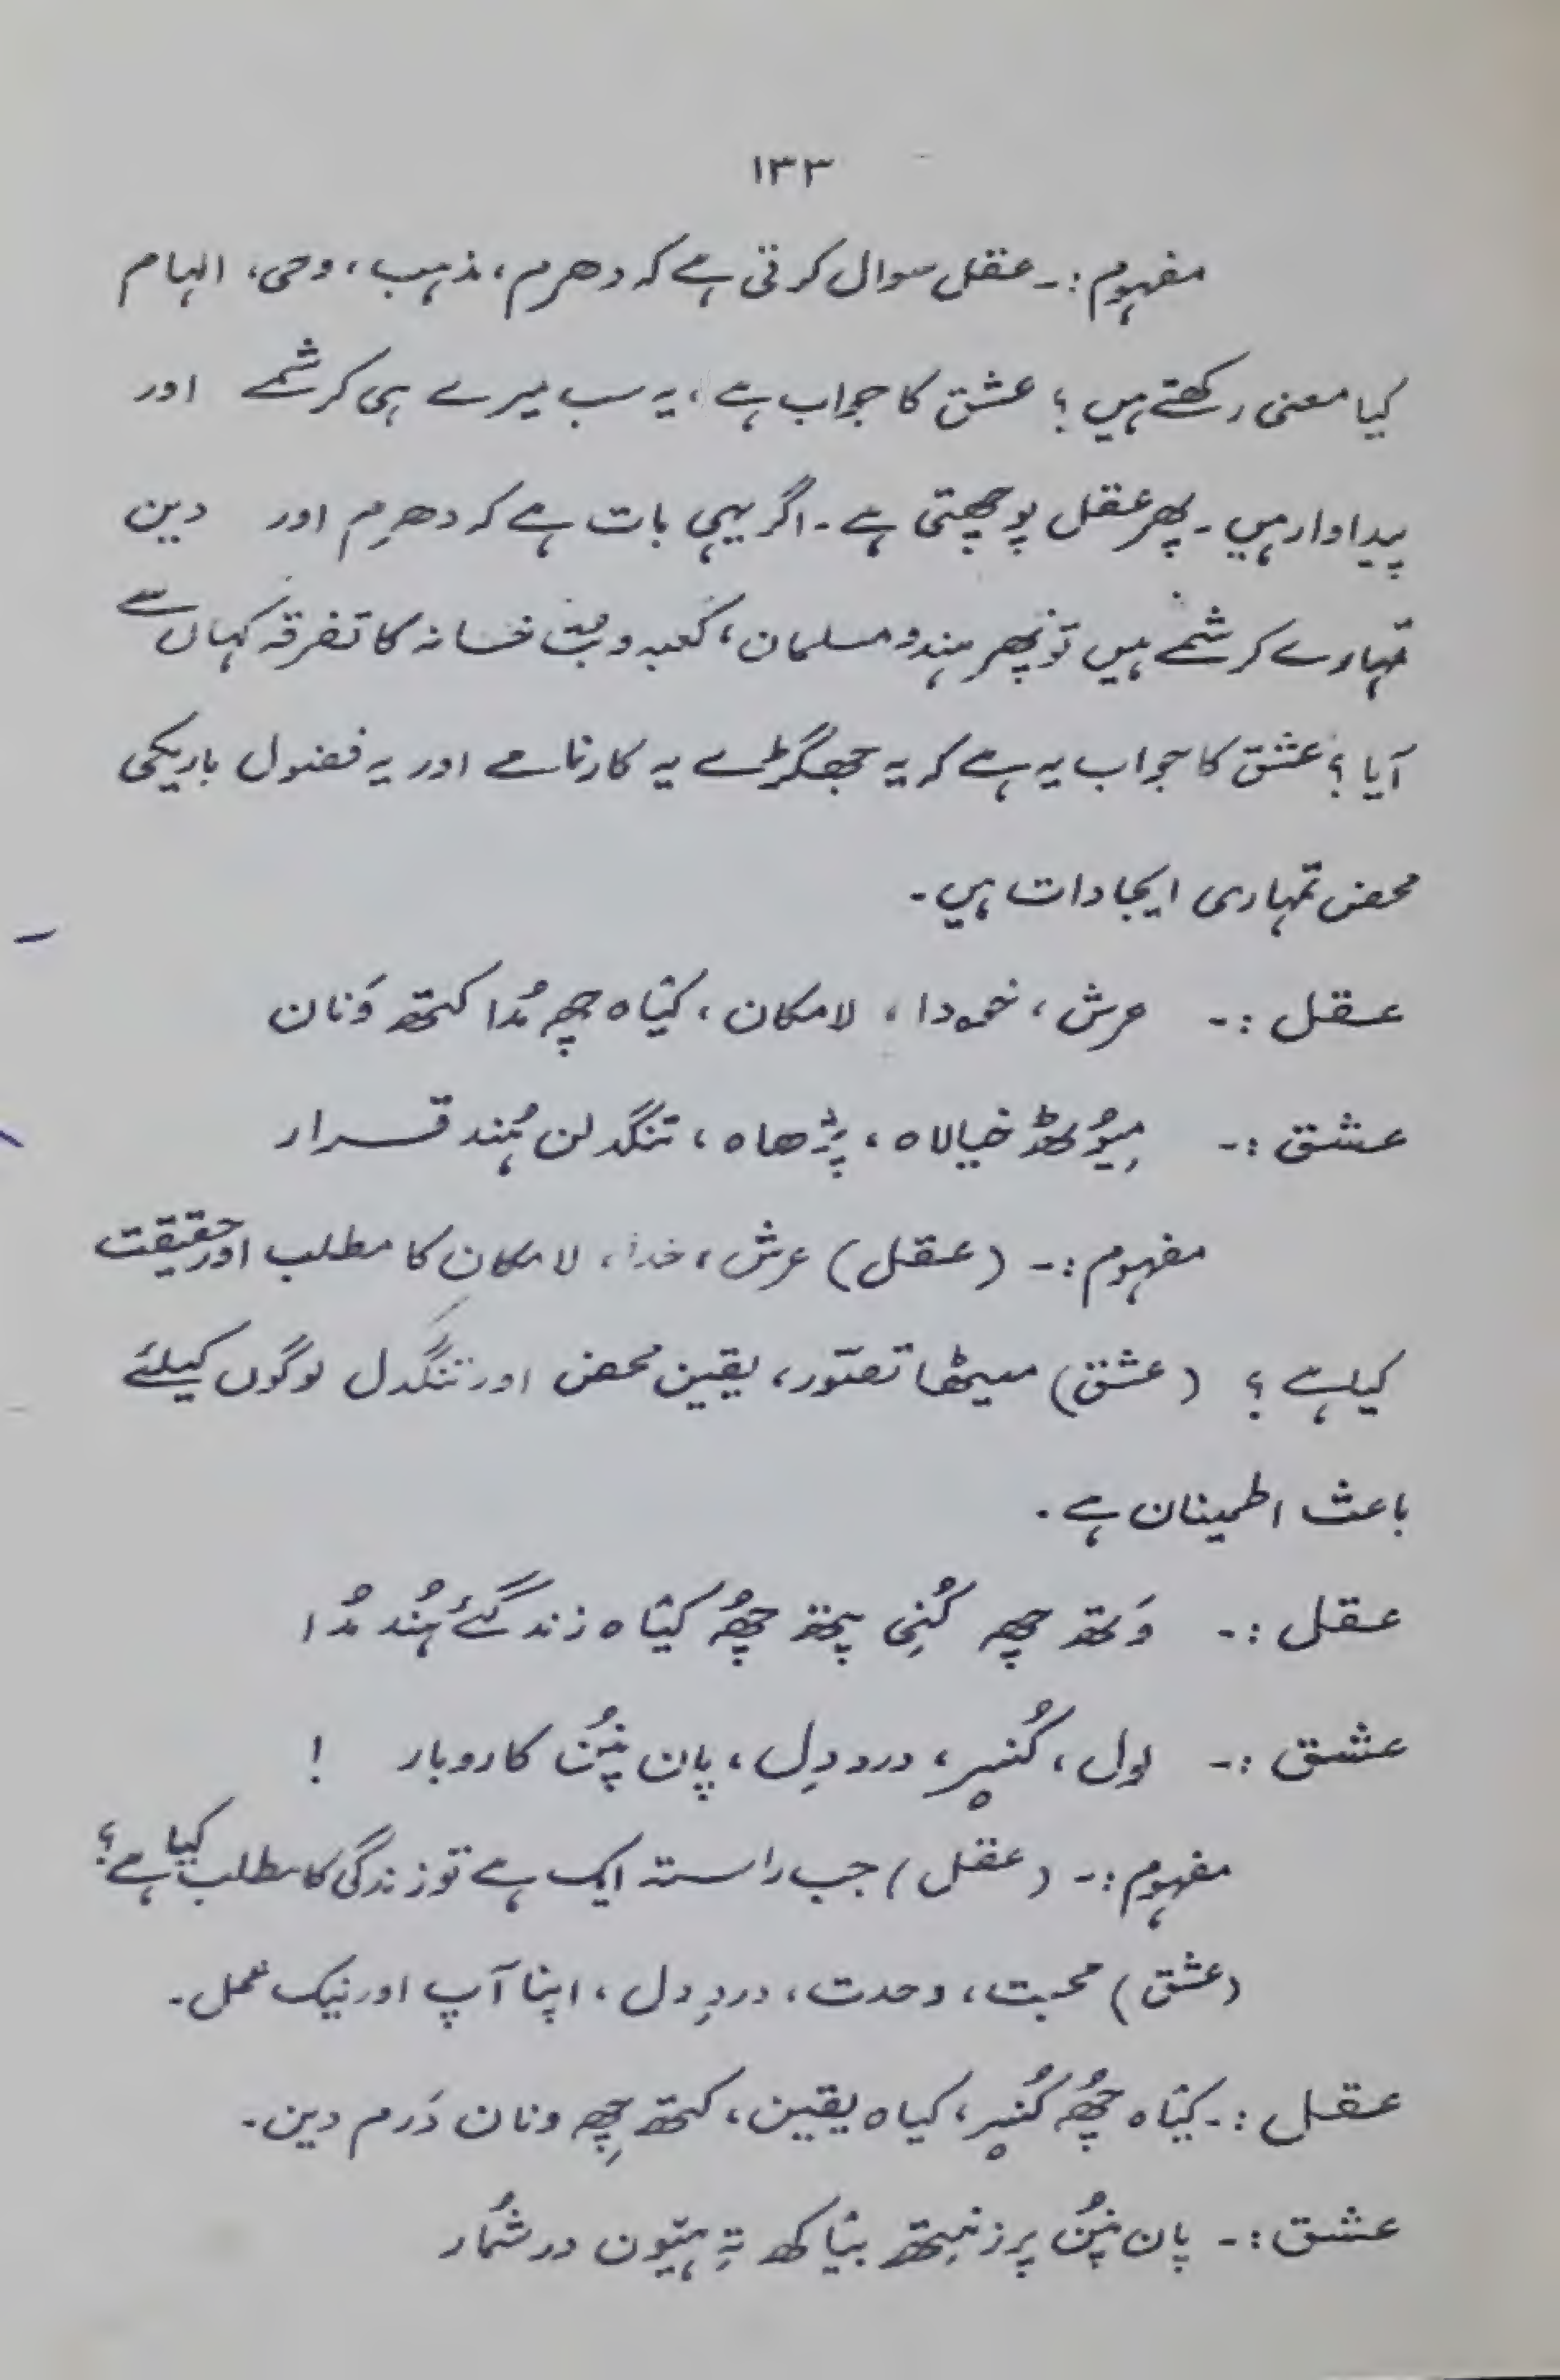 ۱۳۳
مفہوم :۔ عقل سوال کرتی ہے کہ دھرم، مذہب، وحی، الہام
کیا معنی رکھتے ہیں ؟ عشق کا جواب ہے، یہ سب میرے ہی کرشمے اور
پیداوار ہیں۔ پھر عقل پوچھتی ہے۔ اگر یہی بات ہے کہ دھرم اور دین
تمہارے کرشمے ہیں تو پھر ہندو مسلمان، کعبہ و بت خانہ کا تفرقہ کہاں سے
آیا ؟ عشق کا جواب یہ ہے کہ یہ جھگڑے یہ کارنامے اور یہ فضول باریکی
محض تمہاری ایجادات ہیں۔
عقل :۔ عرش، خدا، لامکان، کیٛاہ چھِ مُدا کتھ وَنان
عشق :۔ میوٗٹھ خیالاہ، پژھاہ، تنگدلن ہُند قرار
مفہوم :۔ (عقل) عرش، خدا، لامکان کا مطلب اور حقیقت
کیا ہے ؟ (عشق) میٹھا تصوّر، یقین محض اور تنگدل لوگوں کیلئے
باعث اطمینان ہے۔
عقل :۔ وَتھ چھِ کُنی پتھ چھُ کیٛاہ زندگیٔ ہُند مُدا
عشق :۔ لول، کُنیر، دردِ دِل، پان پنُن کاروبار !
مفہوم :۔ (عقل) جب راستہ ایک ہے تو زندگی کا مطلب کیا ہے؟
(عشق) محبت، وحدت، دردِ دل، اپنا آپ اور نیک عمل۔
عقل :۔ کیٛاہ چھُ کُنیر، کیاہ یقین، کتھ چھِ ونان دَرم دین۔
عشق :۔ پان پنُن پرزنیتھ بیٛاکھ تہِ ہیٚون در شُمار